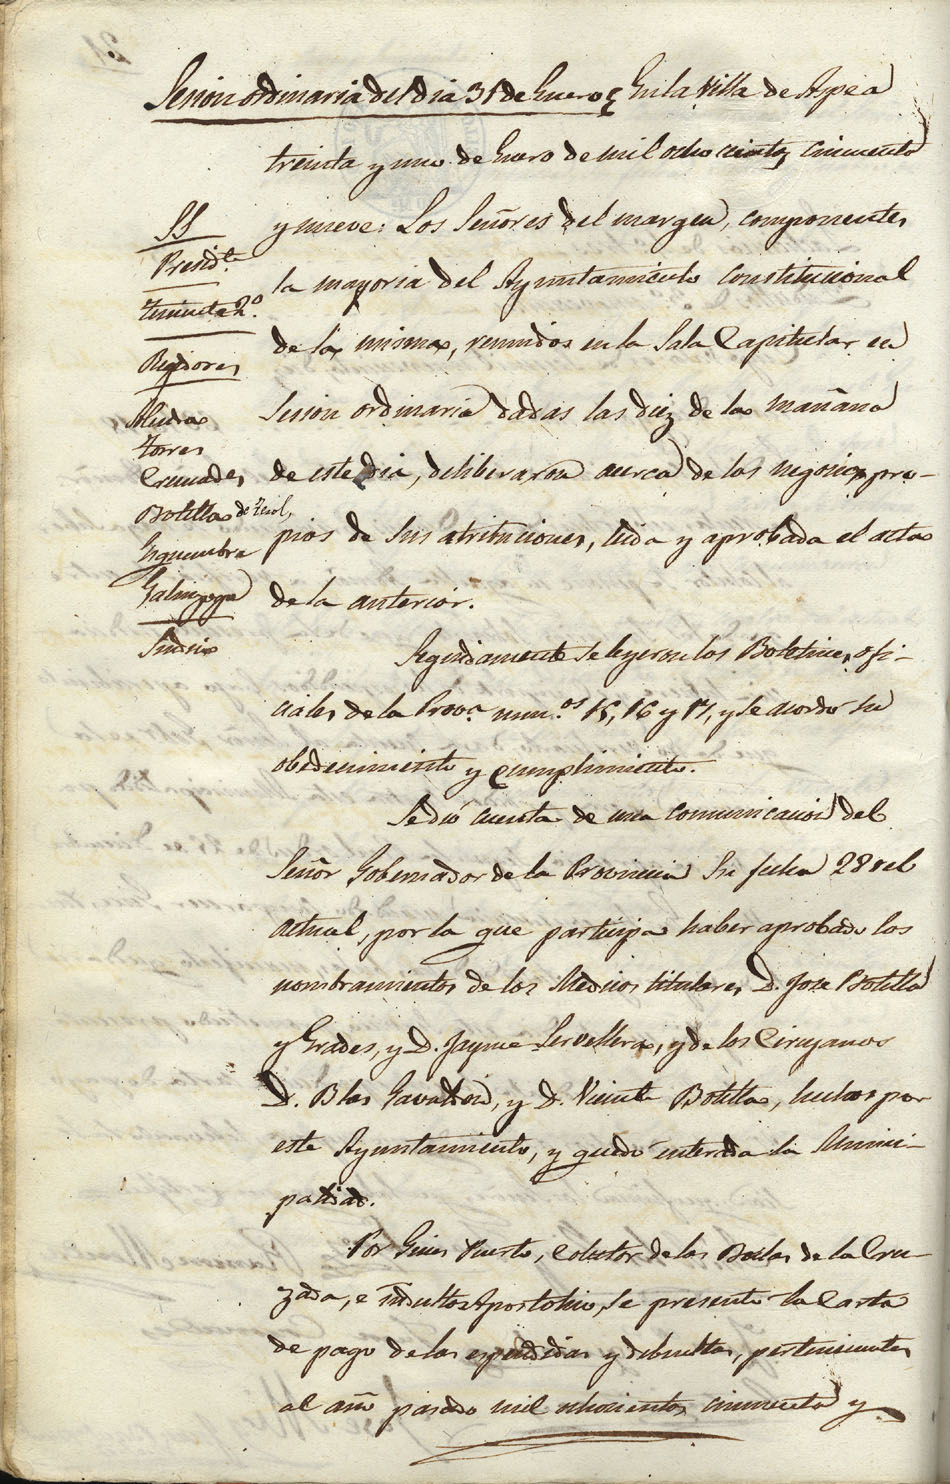 Sesion ordinaria del dia 31 de Enero En la Villa de Aspe a
treinta y uno de Enero de mil ochocientos cincuenta
y nueve: Los Señores del margen, componentes
la mayoria del Ayuntamiento Constitucional
de la misma, reunidos en la Sala Capitular en
Sesion ordinaria dadas las diez de la mañana
de este dia, deliberaron acerca de los negocios pro-
pios de sus atribuciones, leida y aprobada el acta
de la anterior.
SS
Presid.te
Teniente 2.º
Regidores
Almodar
Torres
Cremades
Botella de Terol,
Galinsoga
Sindico
Seguidamente se leyeron los Boletines ofi-
ciales de la Prov.a num.os 15, 16 y 17, y se acordo su
obedecimiento y cumplimiento.
Se dió cuenta de una comunicacion del
Señor Gobernador de la Provincia su fecha 28 del
actual, por la que participa haber aprobado los
nombramientos de los Medicos titulares D. Jose Botella
y Grades, y D. Jayme Cervellera, y de los Cirujanos
D. Blas Gavaldon, y D. Vicente Botella, hechos por
este Ayuntamiento, y quedó enterada la Munici-
palidad.
Por Gines Puerto, Colector de las Bulas de la Cru-
zada, e indulto Apostolico, se presentó la Carta
de pago de las espendidas y debueltas, pertenecientes
al año pasado mil ochocientos cincuenta y